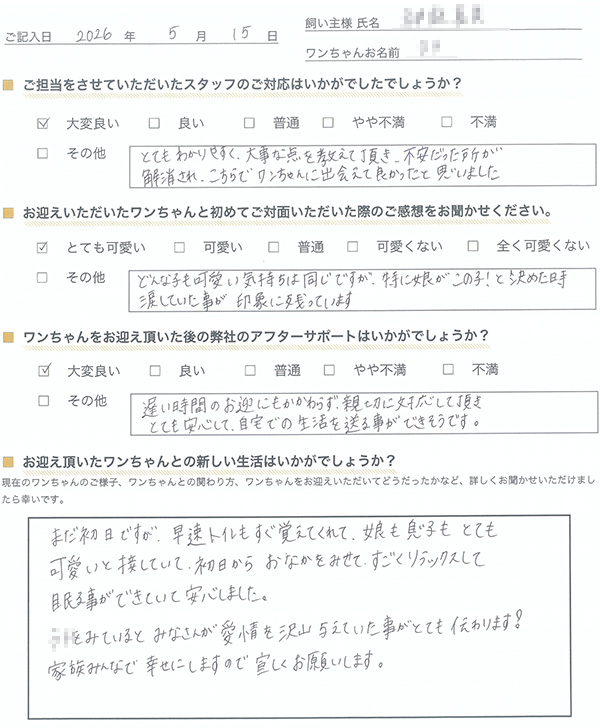 飼い主様 氏名
ご記入日 2026 年 5 月 15 日
ワンちゃんお名前
■ ご担当をさせていただいたスタッフのご対応はいかがでしたでしょうか？
☑ 大変良い □ 良い □ 普通 □ やや不満 □ 不満
□ その他 とてもわかりやすく、大事な点を教えて頂き、不安だった所が
解消され、こちらでワンちゃんに出会えて良かったと思いました
■ お迎えいただいたワンちゃんと初めてご対面いただいた際のご感想をお聞かせください。
☑ とても可愛い □ 可愛い □ 普通 □ 可愛くない □ 全く可愛くない
□ その他 どんな子も可愛い気持ちは同じですが、特に娘がこの子！と決めた時
涙していた事が印象に残っています
■ ワンちゃんをお迎え頂いた後の弊社のアフターサポートはいかがでしょうか？
☑ 大変良い □ 良い □ 普通 □ やや不満 □ 不満
□ その他 遅い時間のお迎にもかかわらず、親切に対応して頂き
とても安心して、自宅での生活を送る事ができそうです。
■ お迎え頂いたワンちゃんとの新しい生活はいかがでしょうか？
現在のワンちゃんのご様子、ワンちゃんとの関わり方、ワンちゃんをお迎えいただいてどうだったかなど、詳しくお聞かせいただけまし
たら幸いです。
まだ初日ですが、早速トイレもすぐ覚えてくれて、娘も息子もとても
可愛いと接していて、初日からおなかをみせて、すごくリラックスして
眠る事ができていて安心しました。
をみていると みなさんが愛情を沢山与えていた事がとても伝わります？
家族みんなで幸せにしますので宜しくお願いします。